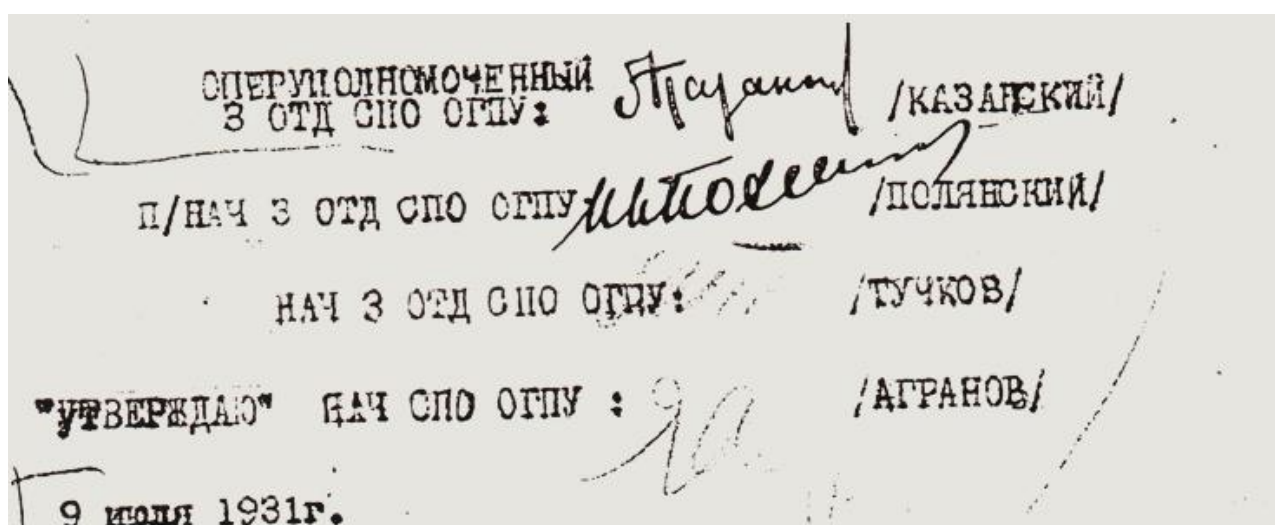 ОПЕРУПОЛНОМОЧЕННЫЙ
3 ОТД СПО ОГПУ: /КАЗАНСКИЙ/
П/НАЧ 3 ОТД СПО ОГПУ /ПОЛЯНСКИЙ/
НАЧ 3 ОТД СПО ОГПУ: /ТУЧКОВ/
"УТВЕРЖДАЮ" НАЧ СПО ОГПУ : /АГРАНОВ/
9 июля 1931г.